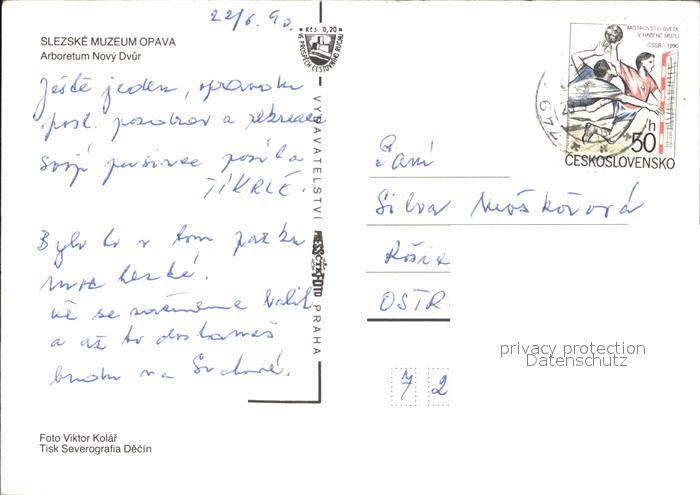 22/6. 90.
SLEZSKÉ MUZEUM OPAVA
Arboretum Nový Dvůr
Kčs 0,20
VE PROSPĚCH CESTOVNÍHO RUCHU
MISTROVSTVÍ SVĚTA
V HÁZENÉ MUŽŮ
ČSSR - 1990
50 h
ČESKOSLOVENSKO
746
Ještě jeden, opravdu
posl. pozdrav z rekreace
svojí
Bylo to v tom parku
moc hezké.
a až to dostaneš
budu na
VYDAVATELSTVÍ PRESSFOTO PRAHA
Paní
Silva
Košic
OSTR
7 2
privacy protection
Datenschutz
Foto Viktor Kolář
Tisk Severografia Děčín